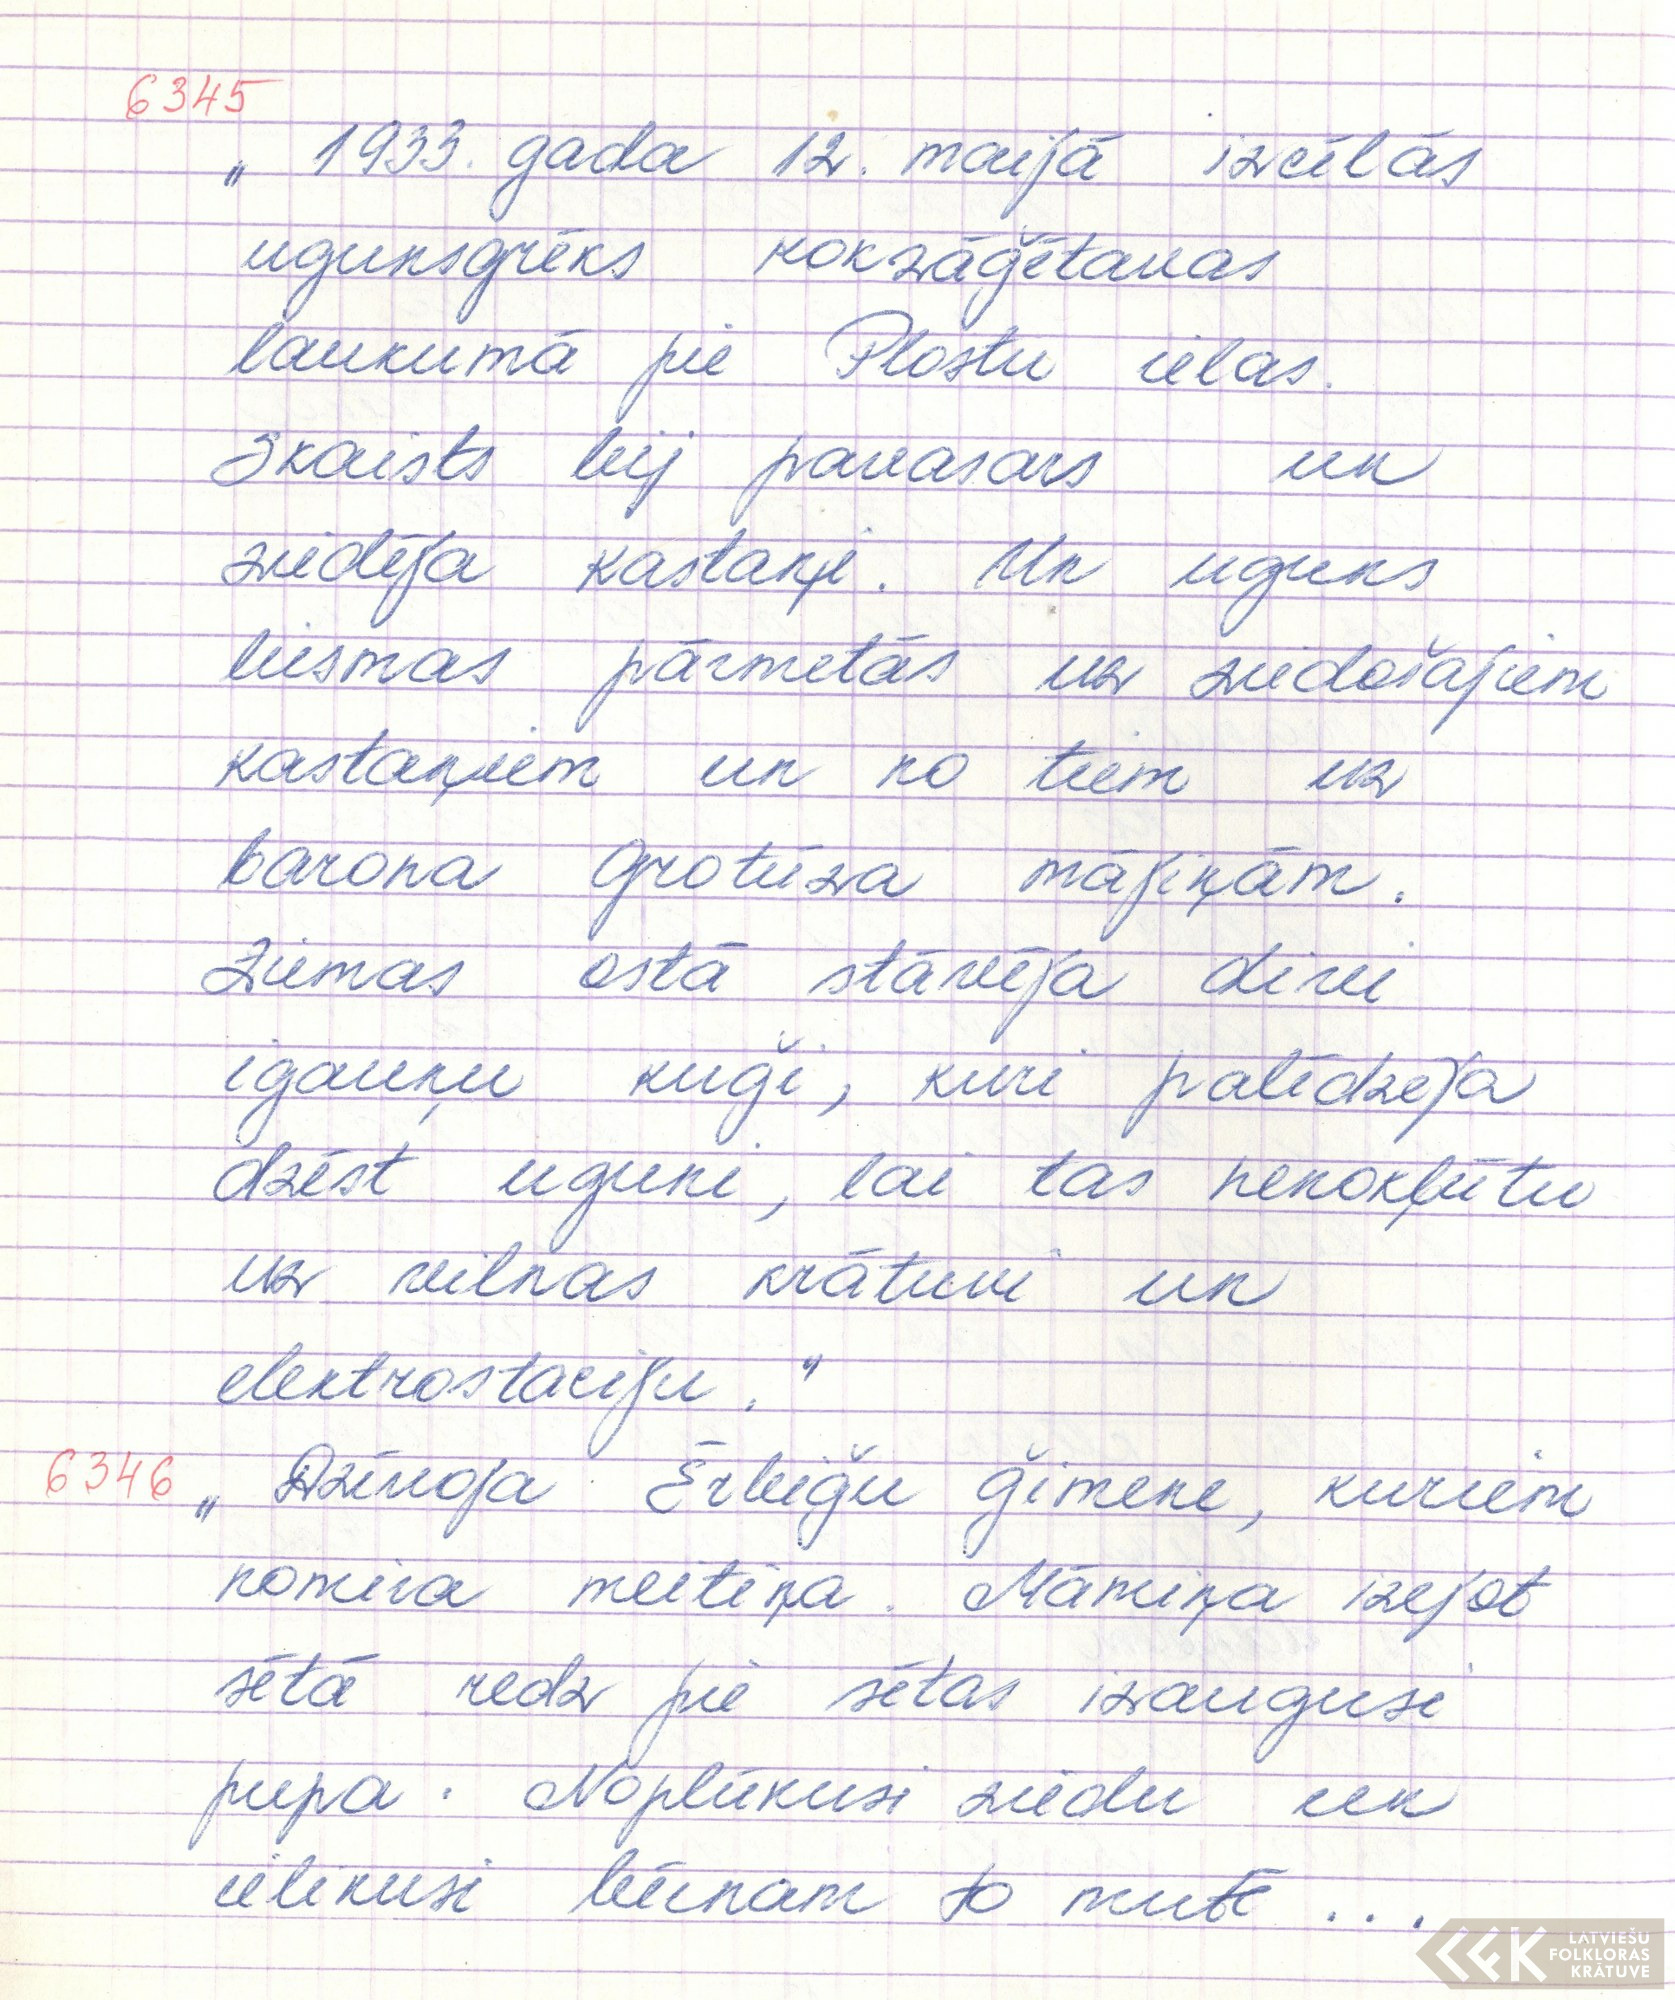 6345
„ 1933. gada 12. maijā izcēlās
ugunsgrēks kokzāģētavas
laukumā pie Plostu ielas.
Skaists bij pavasars un
ziedēja kastaņi. Un uguns
liesmas pārmetās uz ziedošajiem
kastaņiem un no tiem uz
barona Grotūza mājiņām.
Ziemas ostā stāvēja divi
igauņu kuģi, kuri palīdzēja
dzēst uguni, lai tas nenokļūtu
uz vilnas krātuvi un
elektrostaciju."
6346 „ Dzīvoja Ērbiģu ģimene, kuriem
nomira meitiņa. Māmiņa izejot
sētā redz pie sētas izaugusi
pupa. Noplūkusi ziedu un
ielikusi bērnam to mutē ...
LATVIEŠU
FOLKLORAS
KRĀTUVE